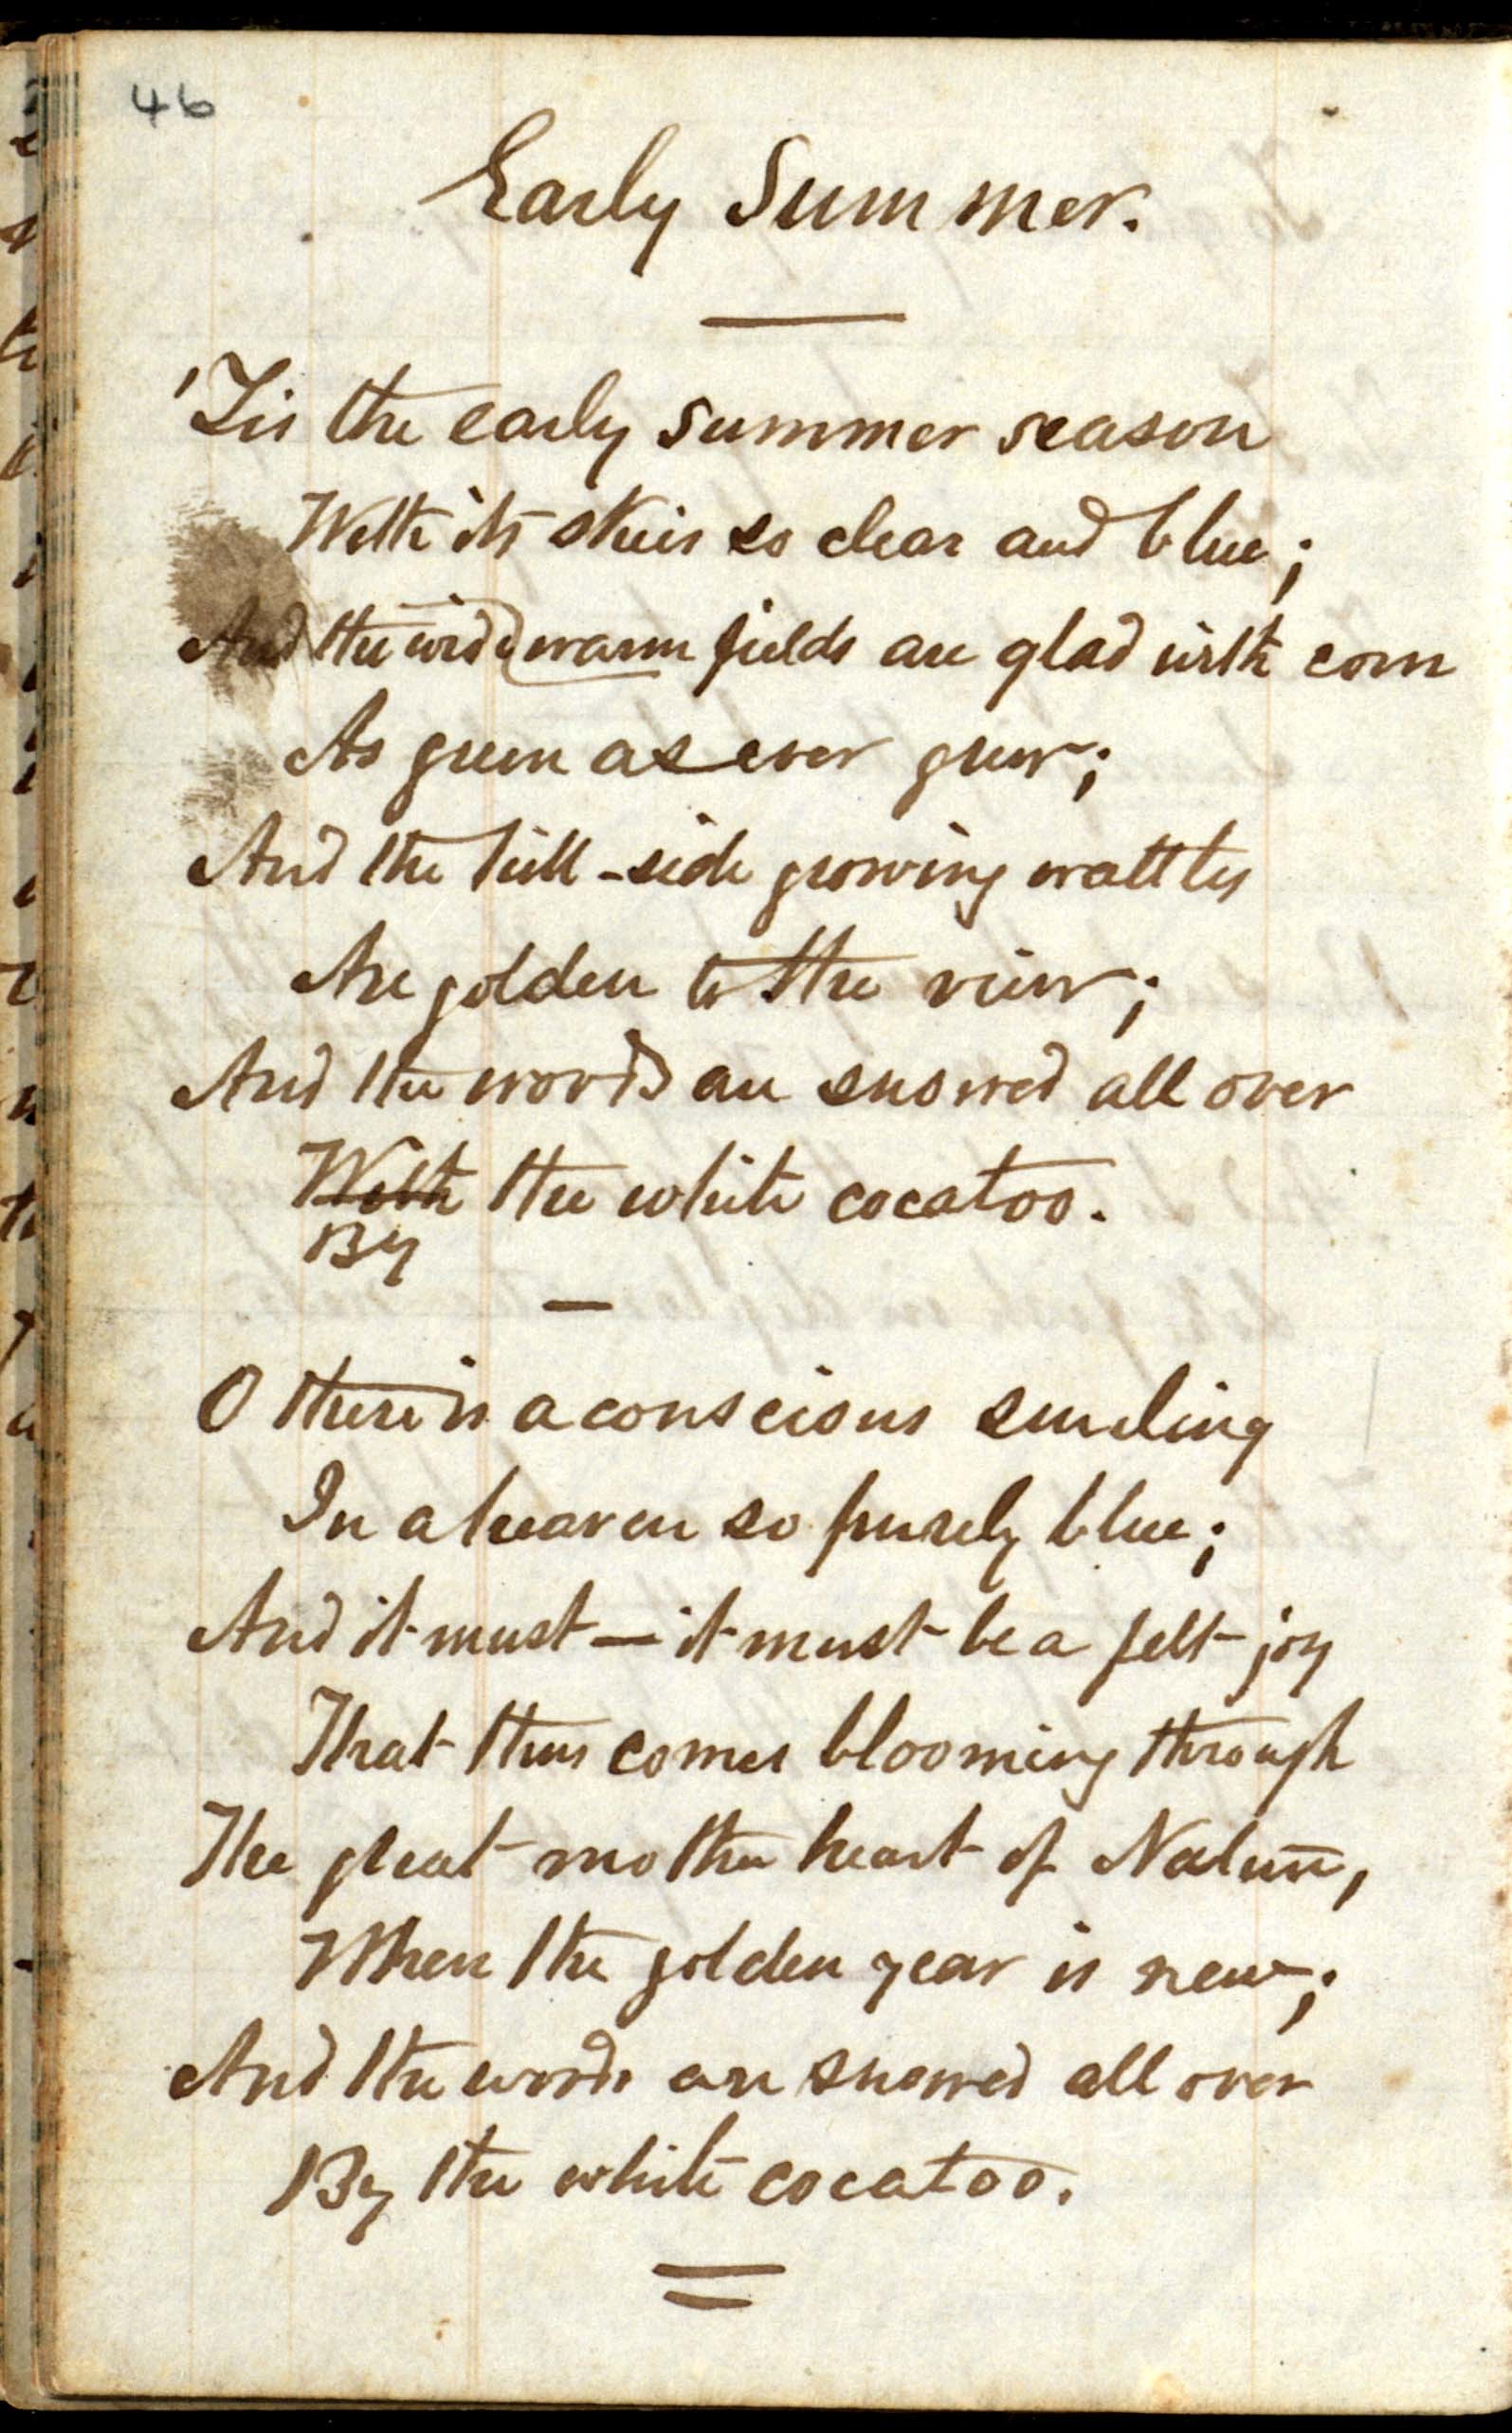 46
Early Summer.
'Tis the early summer season
With its skies so clear and blue;
And the wide warm fields are glad with corn
As green as ever grew;
And the hill-side growing wattles
Are golden to the view;
And the woods are snowed all over
With the white cocatoo.
By
O there is a conscious smiling
In a heaven so purely blue;
And it must — it must be a felt joy
That thus comes blooming through
The great mother heart of Nature,
When the golden year is new;
And the woods are snowed all over
By the white cocatoo.